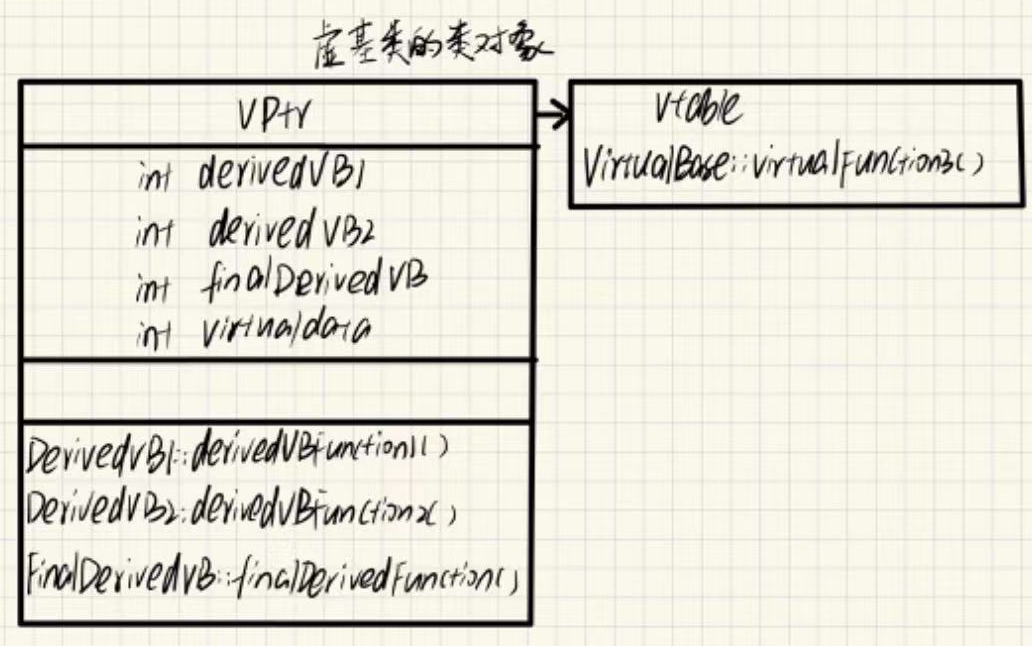 虚基类的类对象
VPtr
int derivedVB1
int derivedVB2
int finalDerivedVB
int virtualdata
DerivedVB1::derivedVBFunction1()
DerivedVB2::derivedVBFunction2()
FinalDerivedVB::finalDerivedFunction()
Vtable
VirtualBase::virtualFunction3()